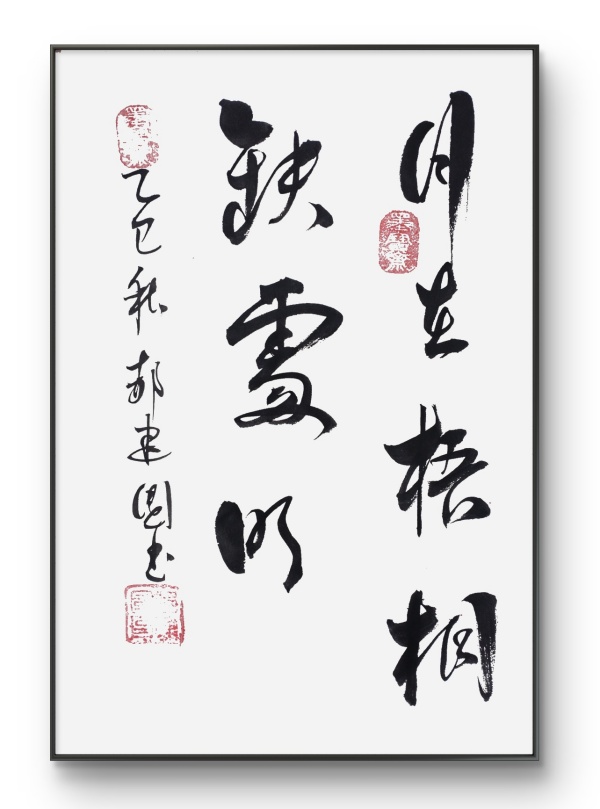 月在梧桐
缺處明
乙巳秋郝建国书